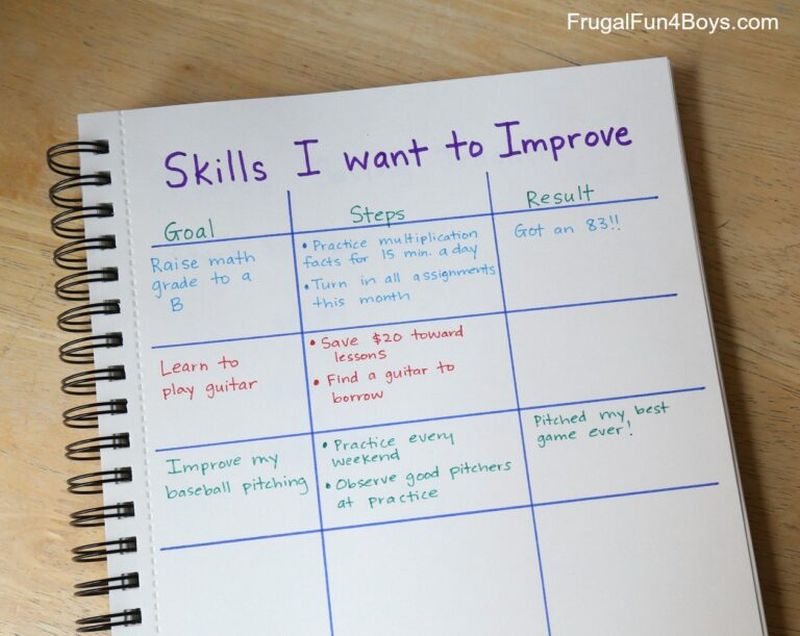 FrugalFun4Boys.com
Skills I want to Improve
Goal
Steps
Result
Raise math
grade to a
B
• Practice multiplication
facts for 15 min. a day
• Turn in all assignments
this month
Got an 83!!
Learn to
play guitar
• Save $20 toward
lessons
• Find a guitar to
borrow
Improve my
baseball pitching
• Practice every
weekend
• Observe good pitchers
at practice
Pitched my best
game ever!